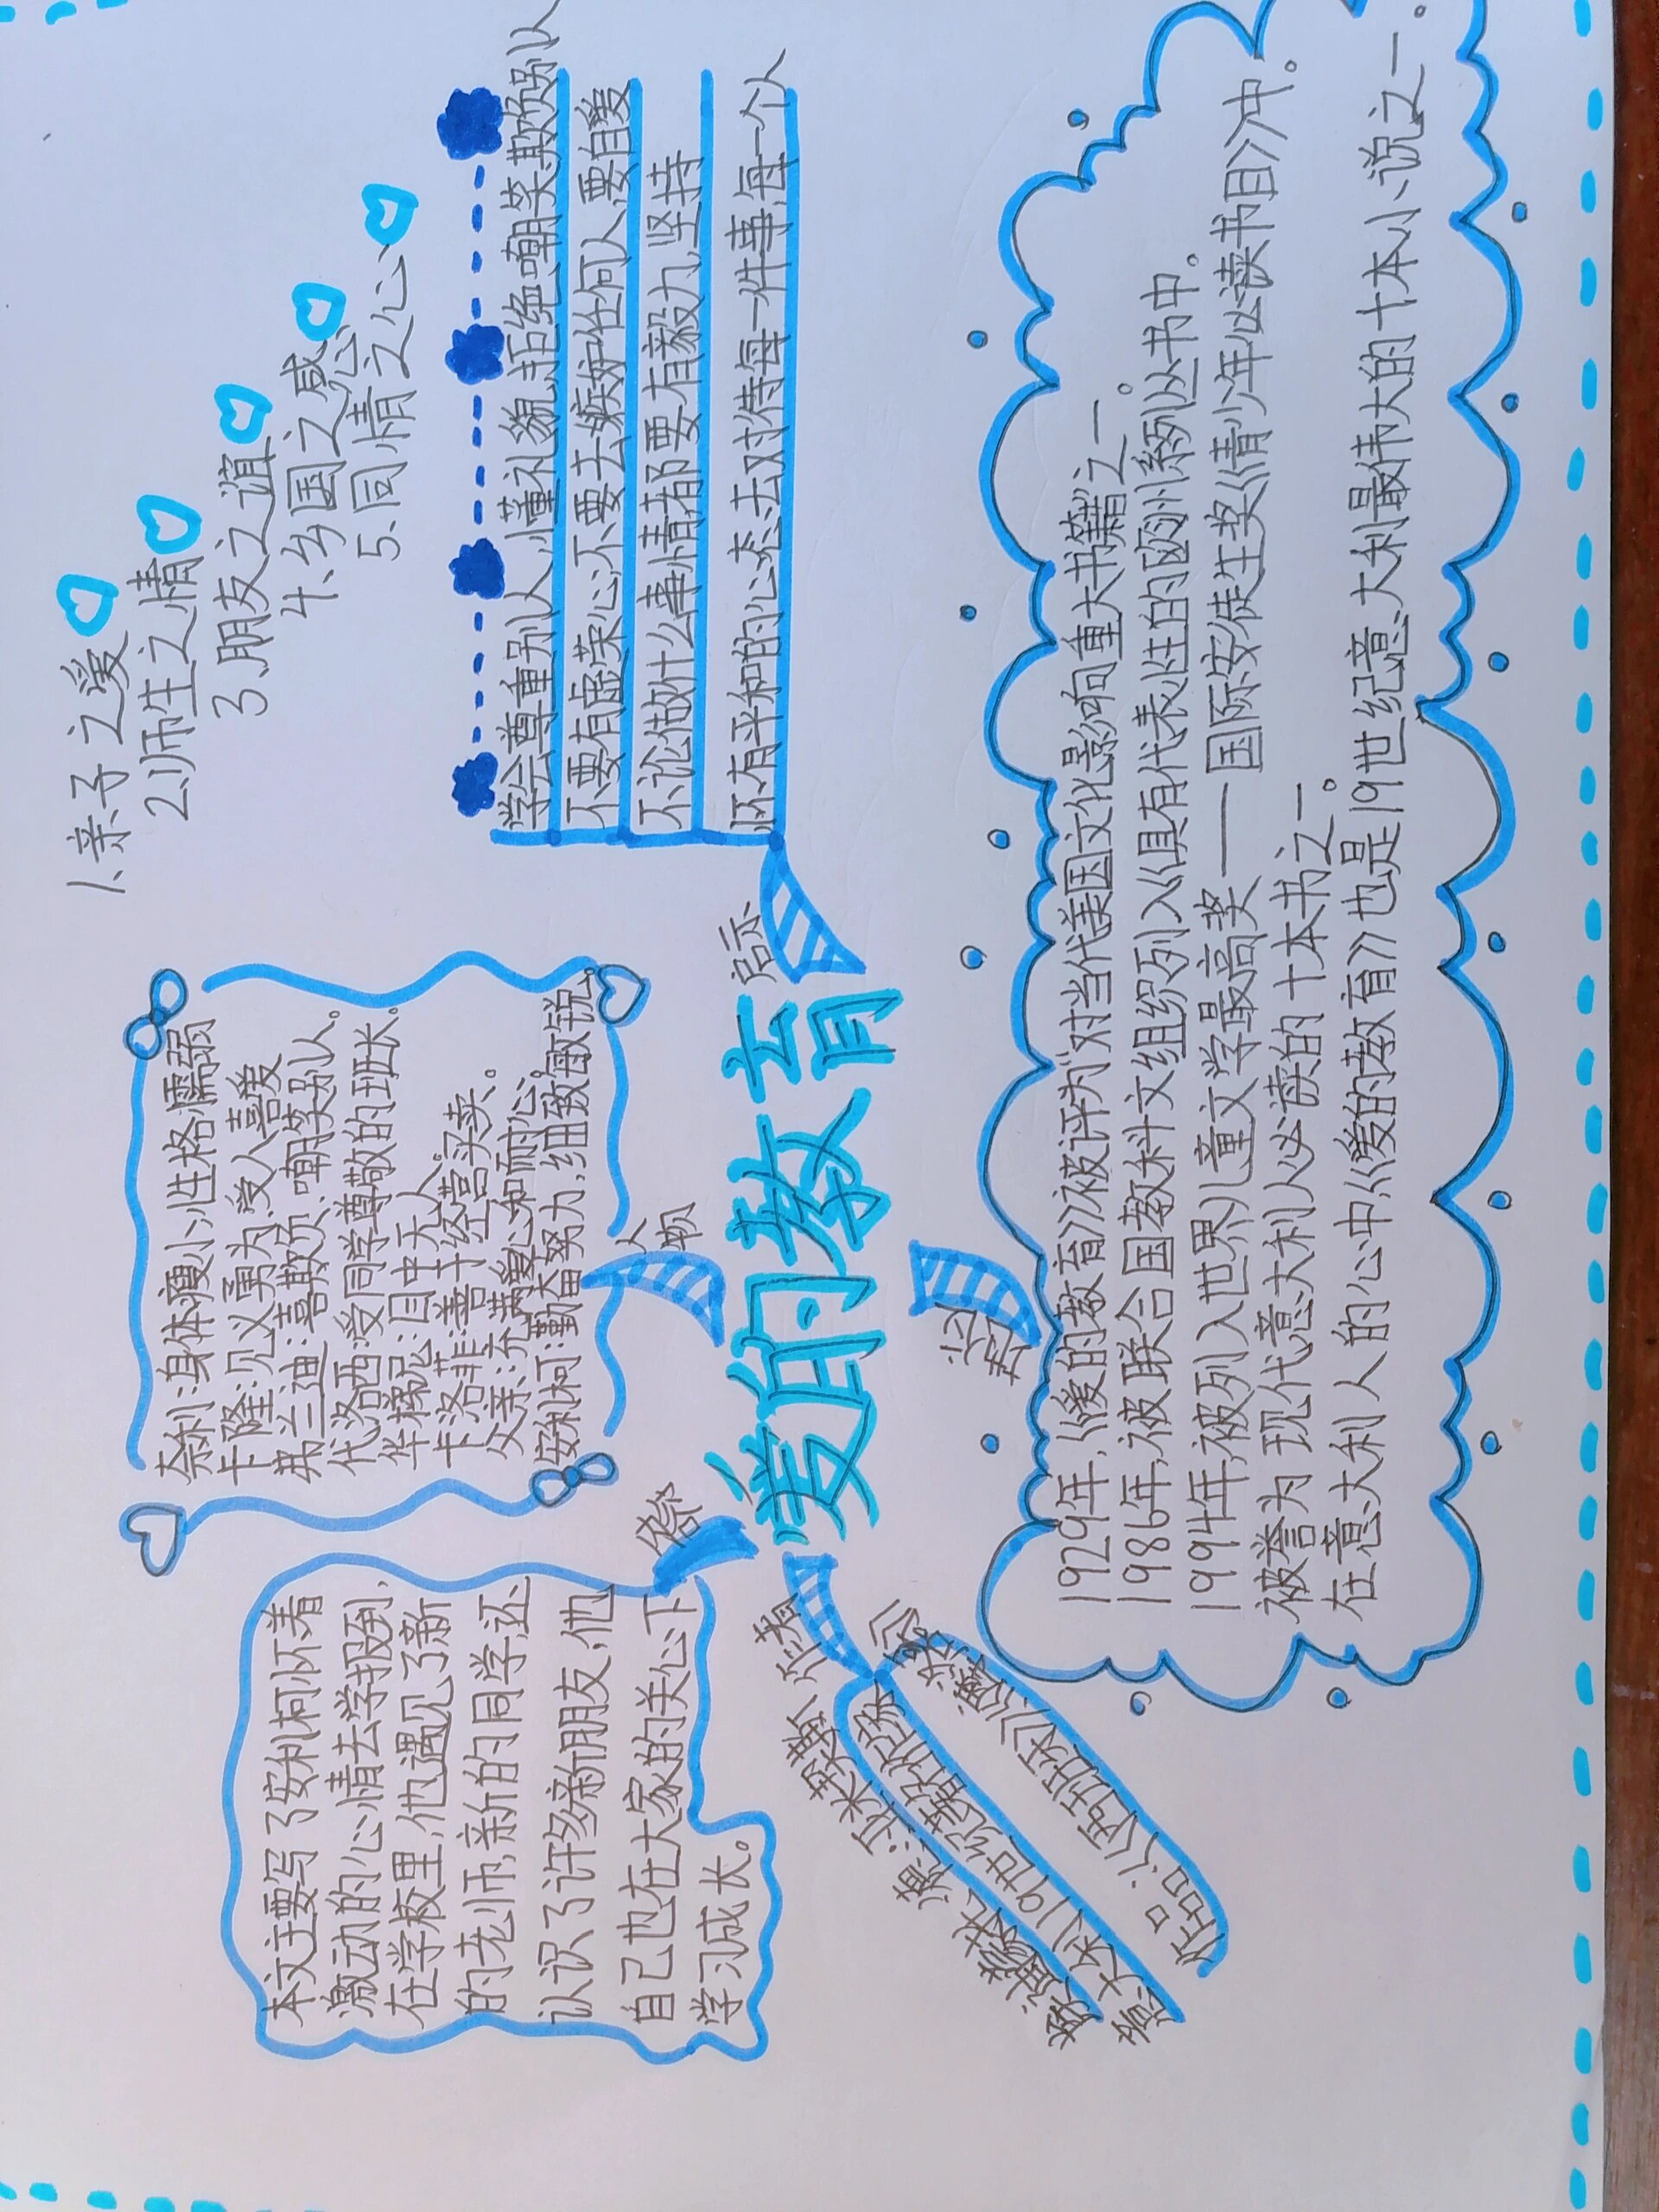 爱的教育
本文主要写了安利柯怀着
激动的心情去学校报到,
在学校里,他遇见了新
的老师,新的同学,还
认识了许多新朋友,他
自己也在大家的关心下
学习成长。
人物
奈利:身体瘦小,性格懦弱
卡隆:见义勇为,受人喜爱
弗兰迪:喜欺负、嘲笑别人。
代洛西:受同学尊敬的班长。
华梯尼:目中无人。
卡洛菲:善于经营买卖。
父亲:充满爱心和耐心。
安利柯:勤奋努力,细致敏锐。
1、亲子之爱
2、师生之情
3、朋友之谊
4、乡国之感
5、同情之心
启示
学会尊重别人,懂礼貌,拒绝嘲笑、欺负别人
不要有虚荣心,不要去嫉妒任何人,要自爱
不论做什么事情都要有毅力,坚持
怀有平和的心态去对待每一件事,每一个人
作者
意大利19世纪著名作家
作品:《两班车》《爆
1929年,《爱的教育》被评为"对当代美国文化影响重大书籍之一。
1986年,被联合国教科文组织列入《具有代表性的欧洲系列丛书》中。
1994年,被列入世界儿童文学最高奖——国际安徒生奖《青少年必读书目》中。
被誉为现代意大利人必读的十本书之一。
在意大利人的心中,《爱的教育》也是19世纪意大利最伟大的十本小说之一。